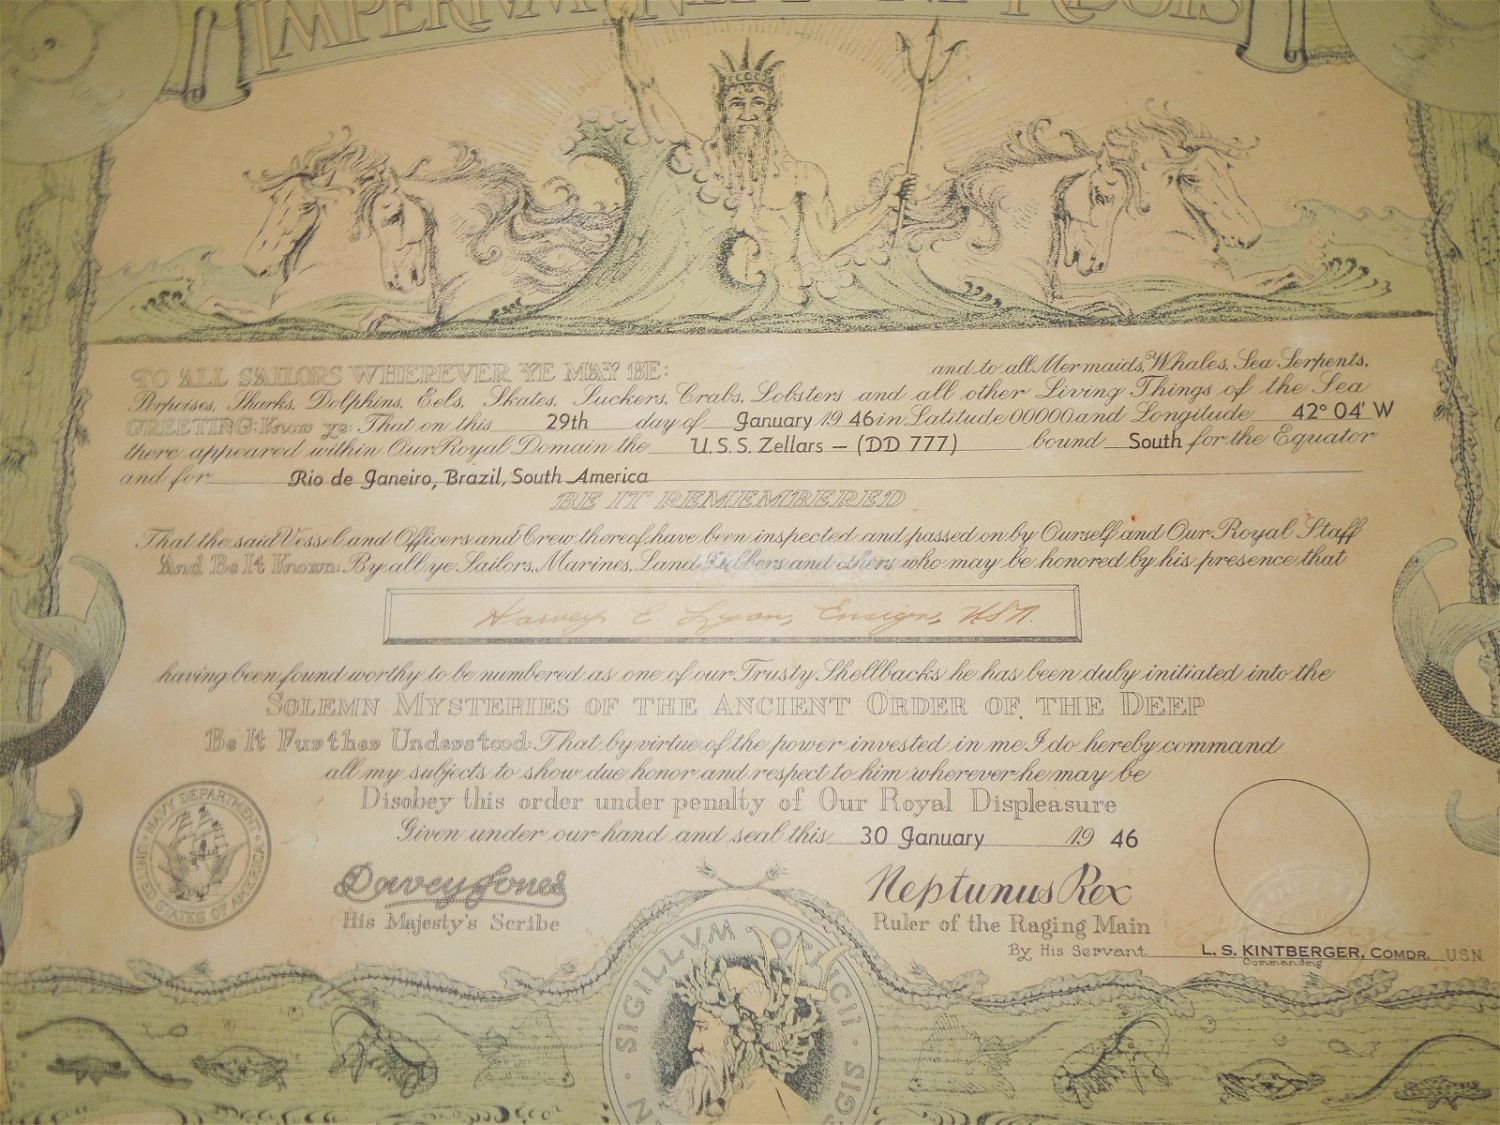 IMPERIUM NEPTUNI REGIS
TO ALL SAILORS WHEREVER YE MAY BE: and to all Mermaids, Whales, Sea Serpents,
Porpoises, Sharks, Dolphins, Eels, Skates, Suckers, Crabs, Lobsters and all other Living Things of the Sea
GREETING: Know ye: That on this 29th day of January 1946 in Latitude 00000 and Longitude 42° 04' W
there appeared within Our Royal Domain the U.S.S. Zellars – (DD 777) bound South for the Equator
and for Rio de Janeiro, Brazil, South America
BE IT REMEMBERED
That the said Vessel and Officers and Crew thereof have been inspected and passed on by Ourself and Our Royal Staff
And Be It Known: By all ye Sailors, Marines, Land Lubbers and others who may be honored by his presence that
Harvey E. Lyon, Ensign, USN.
having been found worthy to be numbered as one of our Trusty Shellbacks he has been duly initiated into the
SOLEMN MYSTERIES OF THE ANCIENT ORDER OF THE DEEP
Be It Further Understood: That by virtue of the power invested in me I do hereby command
all my subjects to show due honor and respect to him wherever he may be
Disobey this order under penalty of Our Royal Displeasure
Given under our hand and seal this 30 January 1946
NAVY DEPARTMENT
UNITED STATES OF AMERICA
Davey Jones
His Majesty's Scribe
Neptunus Rex
Ruler of the Raging Main
By His Servant L. S. KINTBERGER, COMDR. USN
Commanding
SIGILLVM
REGIS